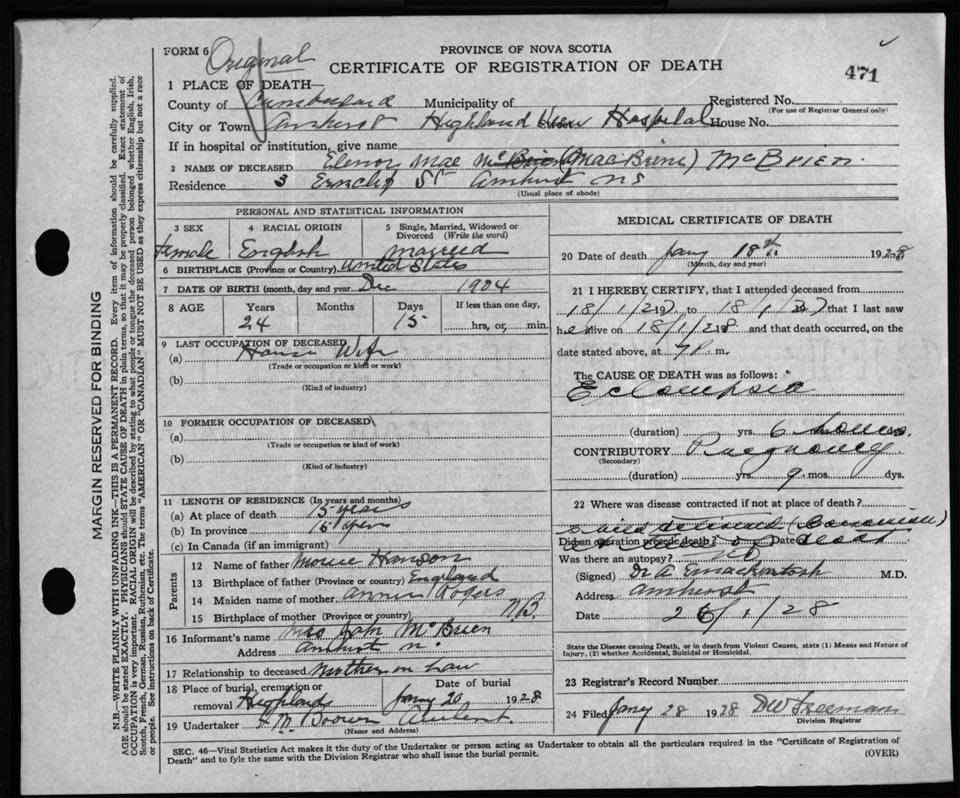 FORM 6
Original
PROVINCE OF NOVA SCOTIA
CERTIFICATE OF REGISTRATION OF DEATH
471
1 PLACE OF DEATH—
County of Cumberland Municipality of Registered No.
(For use of Registrar General only)
City or Town Amherst Highland View Hospital House No.
If in hospital or institution, give name
2 NAME OF DECEASED Elenor Mae McBrien (MacBrine) McBrien.
Residence 3 St Amherst NS
(Usual place of abode)
PERSONAL AND STATISTICAL INFORMATION
3 SEX
Female
4 RACIAL ORIGIN
English
5 Single, Married, Widowed or Divorced (Write the word)
married
6 BIRTHPLACE (Province or Country) United States
7 DATE OF BIRTH (month, day and year) Dec 1904
8 AGE Years Months Days If less than one day,
24 15 hrs, or, min.
9 LAST OCCUPATION OF DECEASED
(a) House Wife
(Trade or occupation or kind or work)
(b)
(Kind of industry)
10 FORMER OCCUPATION OF DECEASED
(a)
(Trade or occupation or kind of work)
(b)
(Kind of industry)
11 LENGTH OF RESIDENCE (In years and months)
(a) At place of death 15 years
(b) In province 15 years
(c) In Canada (if an immigrant)
Parents
12 Name of father Hanson
13 Birthplace of father (Province or country) England
14 Maiden name of mother Annie Rogers
15 Birthplace of mother (Province or country) N.B.
16 Informant's name Mrs John McBrien
Address Amherst n.
17 Relationship to deceased Mother in Law
18 Place of burial, cremation or removal Highland
Date of burial
Jany 20 1928
19 Undertaker Amherst
(Name and Address)
MEDICAL CERTIFICATE OF DEATH
20 Date of death Jany 18th 1928
(Month, day and year)
21 I HEREBY CERTIFY, that I attended deceased from
18/1/28 to 18/1/28 that I last saw
her alive on 18/1/28 and that death occurred, on the
date stated above, at 7 P. m.
The CAUSE OF DEATH was as follows:
Eclampsia
(duration) yrs. 6 hours.
CONTRIBUTORY Pregnancy
(Secondary)
(duration) yrs. 9 mos. dys.
22 Where was disease contracted if not at place of death?
Did an operation precede death? Date
Was there an autopsy? no
(Signed) Mackintosh M.D.
Address Amherst
Date 26/1/28
State the Disease causing Death, or in death from Violent Causes, state (1) Means and Nature of Injury, (2) whether Accidental, Suicidal or Homicidal.
23 Registrar's Record Number
24 Filed Jany 28 1928 DW Freeman
Division Registrar
SEC. 46—Vital Statistics Act makes it the duty of the Undertaker or person acting as Undertaker to obtain all the particulars required in the "Certificate of Registration of
Death" and to fyle the same with the Division Registrar who shall issue the burial permit. (OVER)
MARGIN RESERVED FOR BINDING
N.B.—WRITE PLAINLY WITH UNFADING INK—THIS IS A PERMANENT RECORD. Every item of information should be carefully supplied.
AGE should be stated EXACTLY. PHYSICIANS should STATE CAUSE OF DEATH in plain terms, so that it may be properly classified. Exact statement of
OCCUPATION is very important. RACIAL ORIGIN will be described by stating to what people or tongue the deceased person belonged whether English, Irish,
Scotch, French, German, Russian, Ruthenian, etc. The terms "AMERICAN" OR "CANADIAN" MUST NOT BE USED as they express citizenship but not a race
or people. See instructions on back of Certificate.